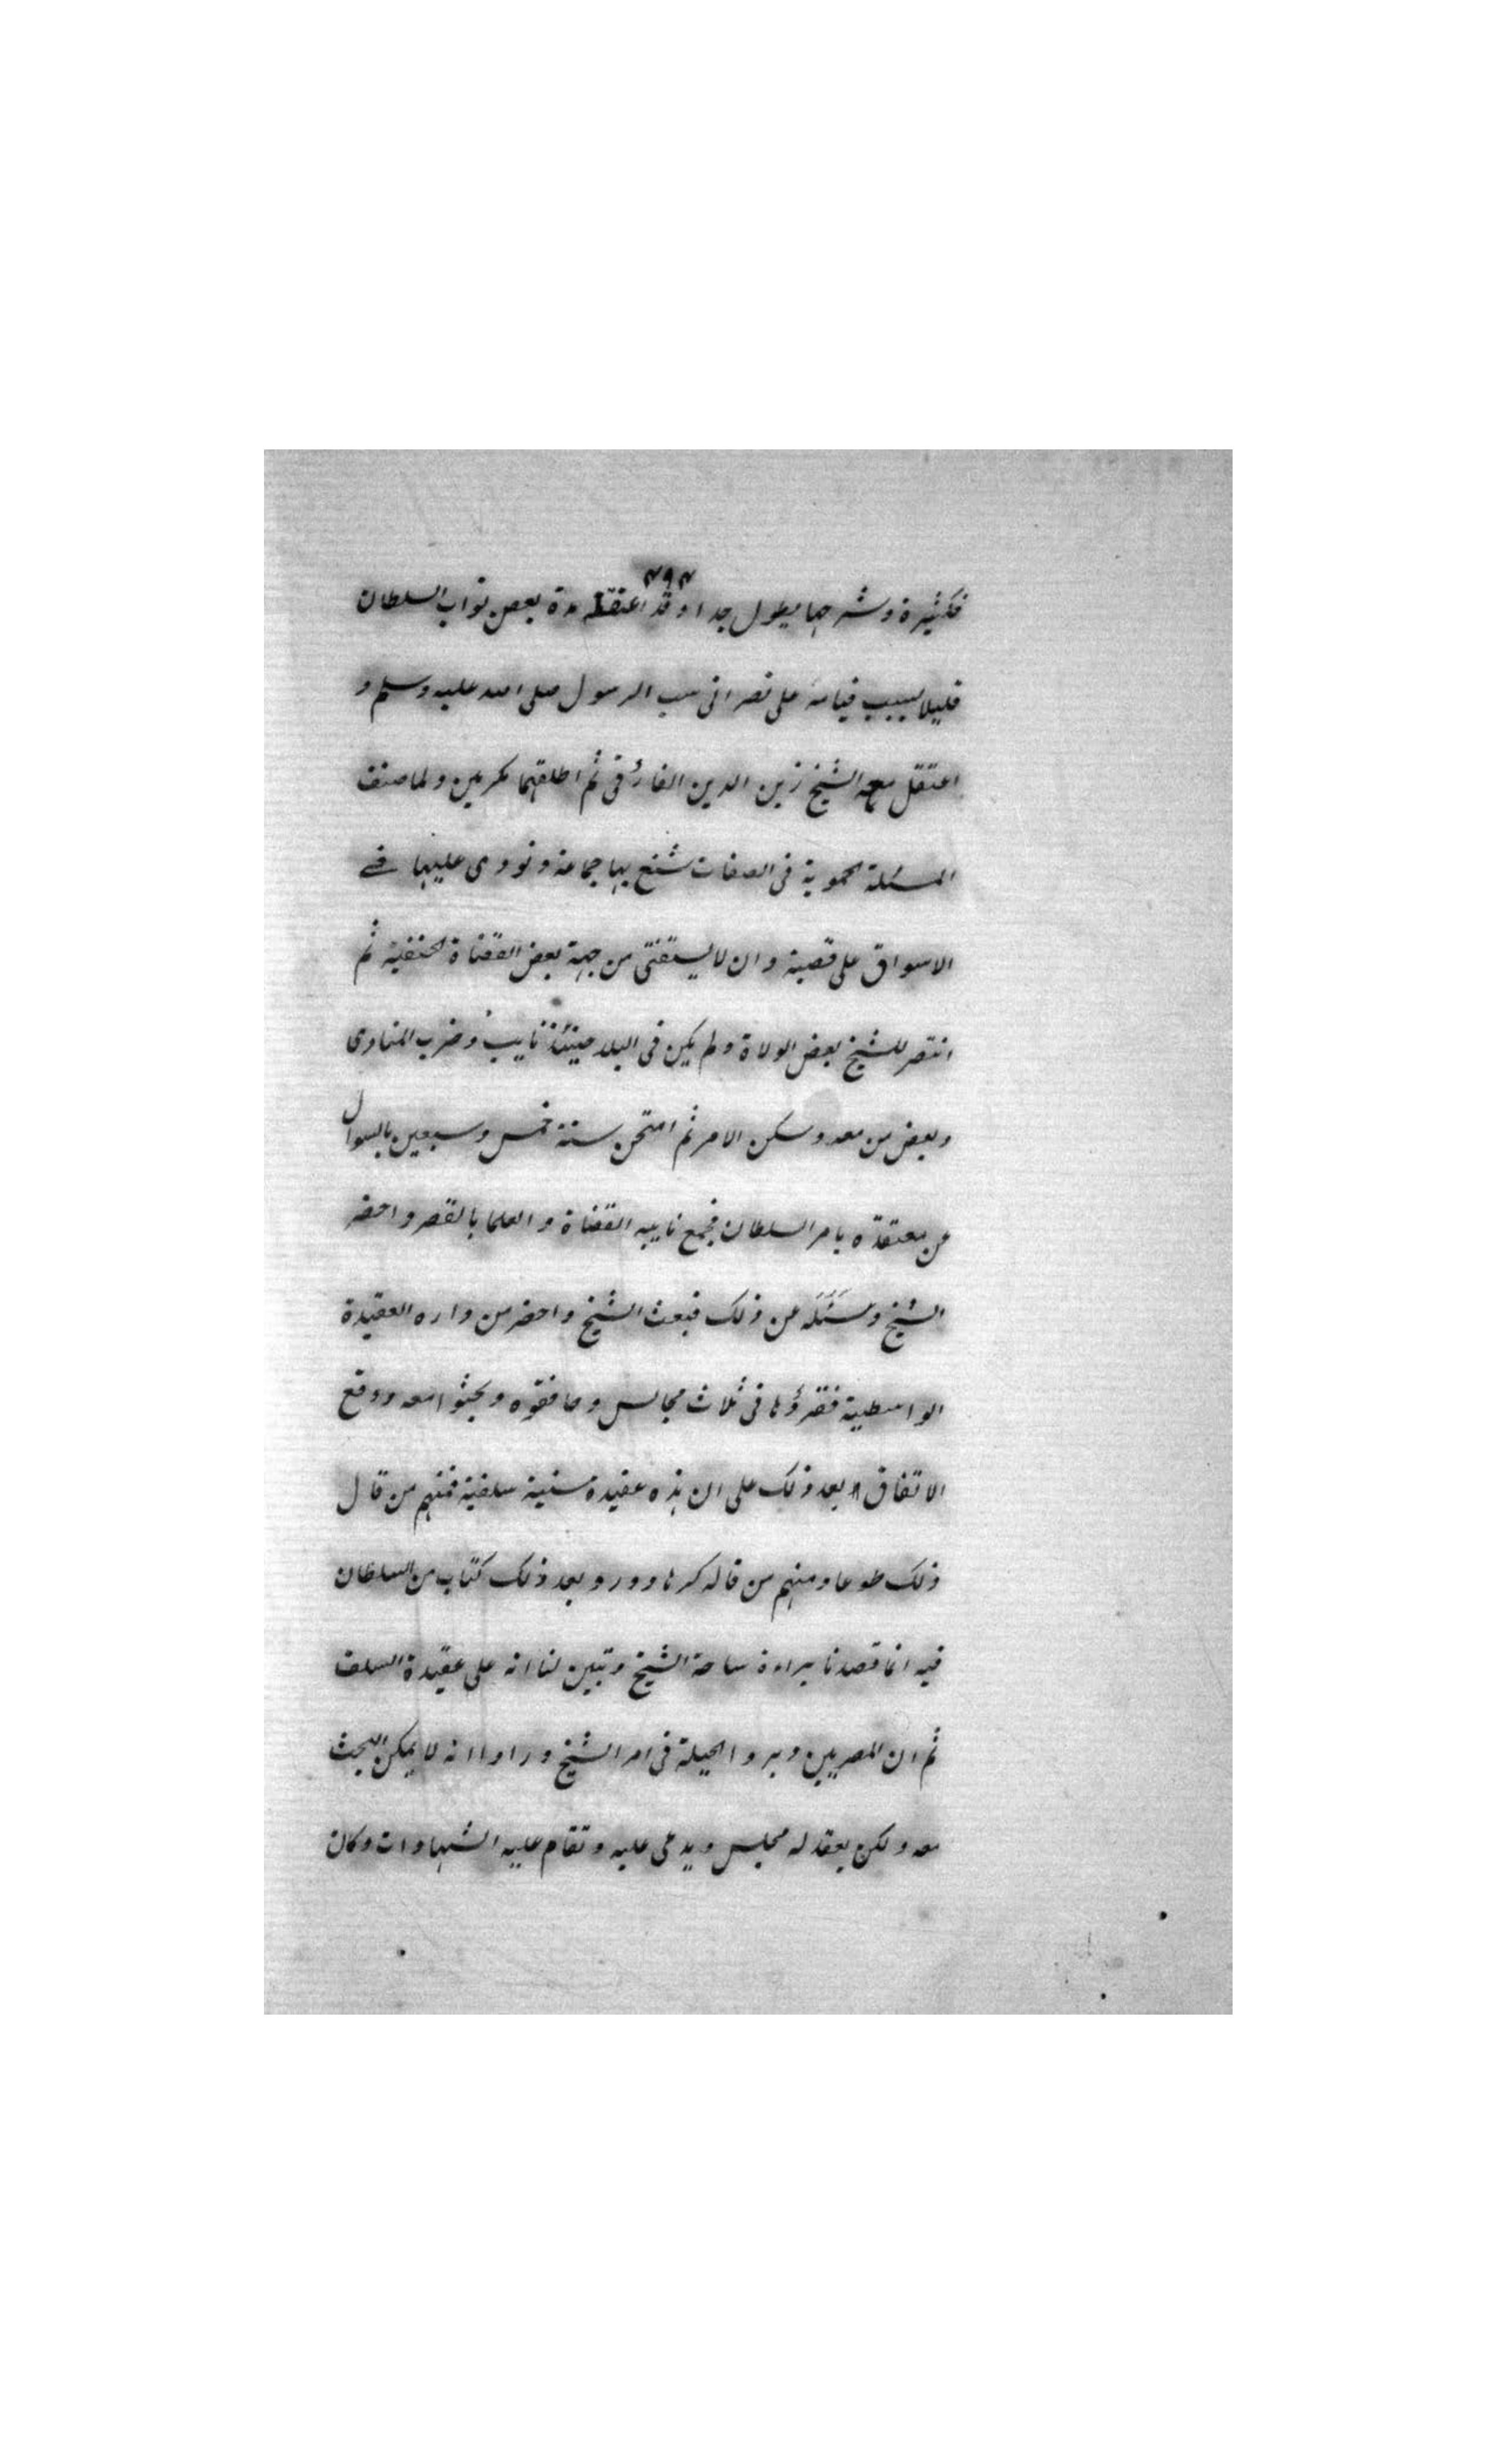 ٣٩٣
فكثيرة وشرحها يطول جدا وقد اعتقله مدة بعض نواب السلطان
قليلا بسبب قيامه على نصرانى سب الرسول صلى الله عليه وسلم و
اعتقل معه الشيخ زين الدين الفارقى ثم اطلقهما مكرمين ولما صنف
المسئلة الحموية فى الصفات شنع بها جماعة ونودى عليها فے
الاسواق على قصبة وان لا يستفتى من جهة بعض القضاة الحنفية ثم
انتصر للشيخ بعض الولاة ولم يكن فى البلد حينئذ نايب وضرب المنادى
وبعض من معه وسكن الامر ثم امتحن سنة خمس وسبعين بالسوال
عن معتقده بامر السلطان فجمع نايبه القضاة والعلما بالقصر واحضر
الشيخ وسئله عن ذلك فبعث الشيخ واحضر من داره العقيدة
الواسطية فقرؤها فى ثلاث مجالس وحافقوه وبحثوا معه ووقع
الاتفاق بعد ذلك على ان هذه عقيدة سنية سلفية فمنهم من قال
ذلك طوعا ومنهم من قاله كرها وورد بعد ذلك كتاب من السلطان
فيه انما قصدنا براءة ساحة الشيخ وتبين لنا انه على عقيدة السلف
ثم ان المصريين دبروا الحيلة فى امر الشيخ وراوا انه لا يمكن البحث
معه ولكن يعقد له مجلس ويدعى عليه وتقام عليه الشهادات وكان